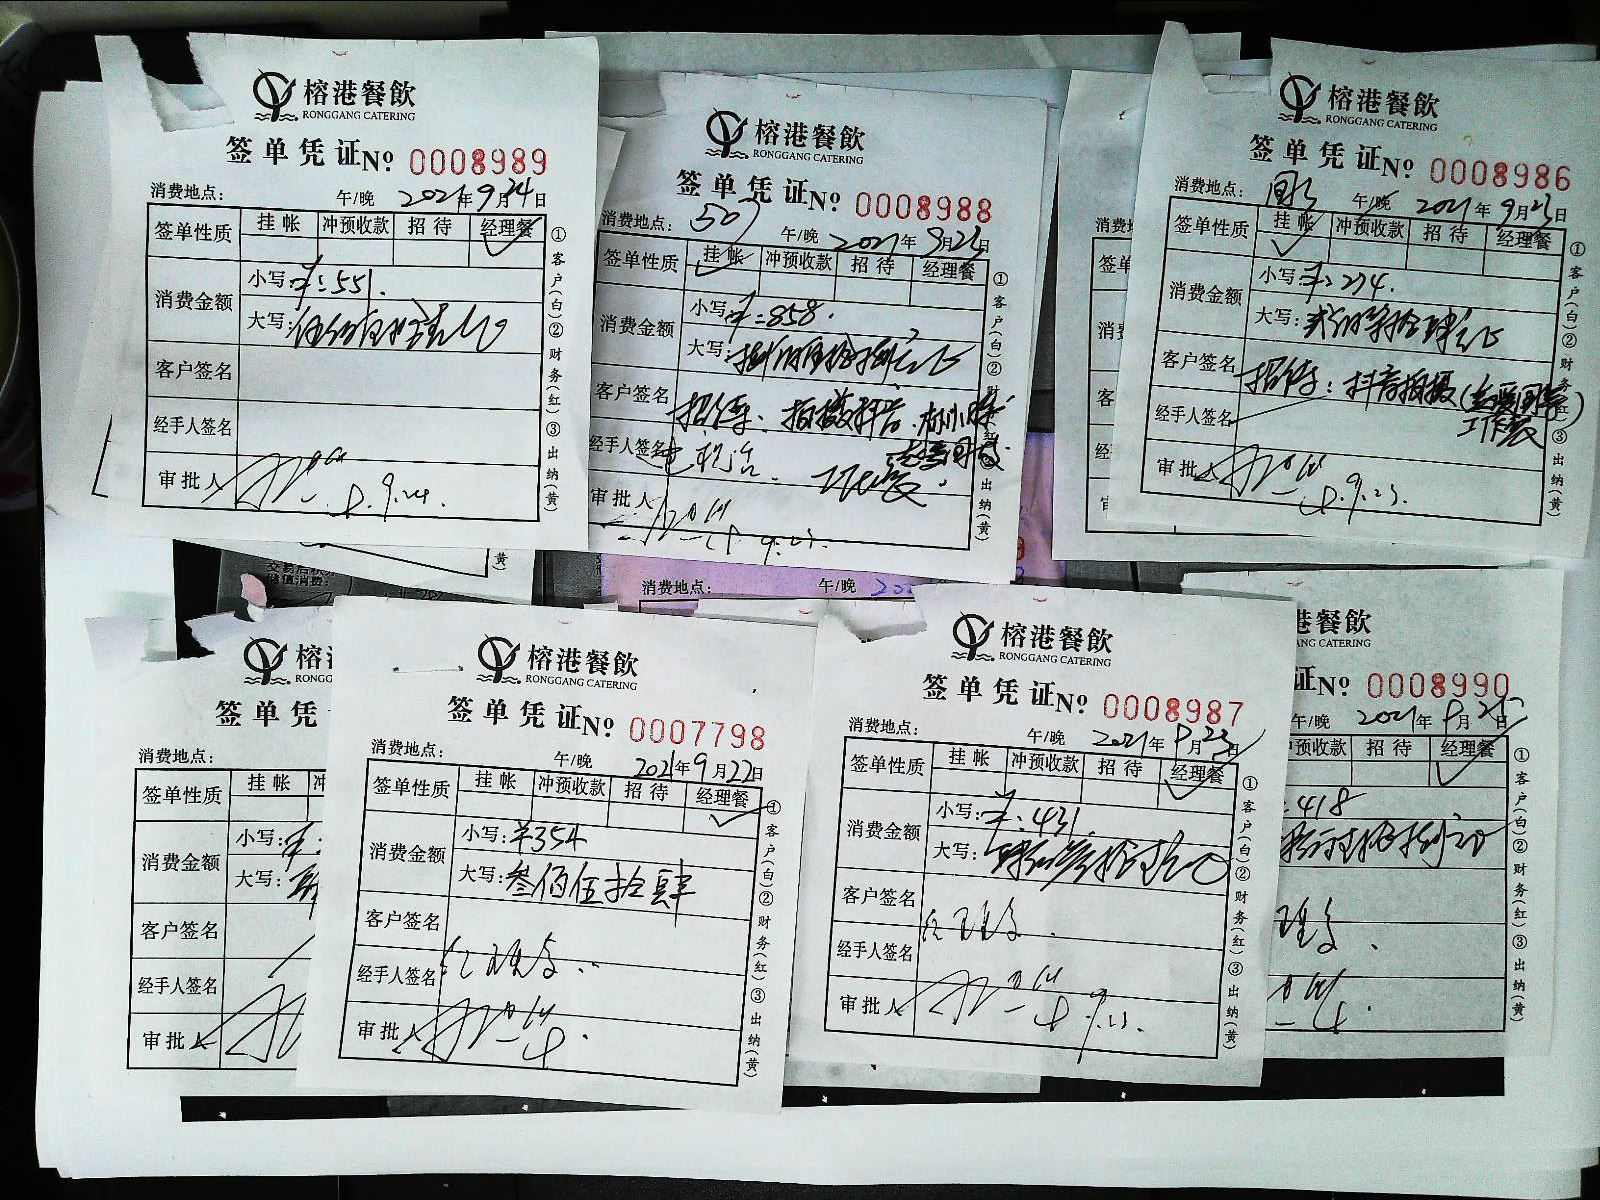 榕港餐飲
RONGGANG CATERING
签单凭证 No 0008989
消费地点: 午/晚 2021年9月24日
签单性质 挂帐 冲预收款 招待 经理餐
消费金额 小写:¥:551.
大写:
客户签名
经手人签名
审批人 9.24.
①客户(白)②财务(红)③出纳(黄)
榕港餐飲
RONGGANG CATERING
签单凭证 No 0008988
消费地点: 507 午/晚 2021年9月23日
签单性质 挂帐 冲预收款 招待 经理餐
消费金额 小写:¥:858.
大写:捌佰伍拾捌元正
客户签名 招待: 拍摄抖音.
经手人签名
审批人 9.23.
①客户(白)②财务(红)③出纳(黄)
榕港餐飲
RONGGANG CATERING
签单凭证 No 0008986
消费地点: 午/晚 2021年9月23日
签单性质 挂帐 冲预收款 招待 经理餐
消费金额 小写:¥:274.
大写:贰佰柒拾肆元正
客户签名 招待:抖音拍摄
经手人签名 工作餐
审批人 9.23.
①客户(白)②财务(红)③出纳(黄)
消费地点: 午/晚
榕港
签单凭
消费地点:
签单性质 挂帐 冲
消费金额 小写:¥:
大写:
客户签名
经手人签名
审批人
榕港餐飲
RONGGANG CATERING
签单凭证 No 0007798
消费地点: 午/晚 2021年9月22日
签单性质 挂帐 冲预收款 招待 经理餐
消费金额 小写:¥354
大写:叁佰伍拾肆
客户签名
经手人签名 经理餐
审批人
①客户(白)②财务(红)③出纳(黄)
榕港餐飲
RONGGANG CATERING
签单凭证 No 0008987
消费地点: 午/晚 2021年9月23日
签单性质 挂帐 冲预收款 招待 经理餐
消费金额 小写:¥:431.
大写:肆佰叁拾壹元
客户签名 经理餐.
经手人签名
审批人 9.23.
①客户(白)②财务(红)③出纳(黄)
港餐飲
RONGGANG CATERING
证 No 0008990
午/晚 2021年9月25日
预收款 招待 经理餐
:418
理餐.
①客户(白)②财务(红)③出纳(黄)